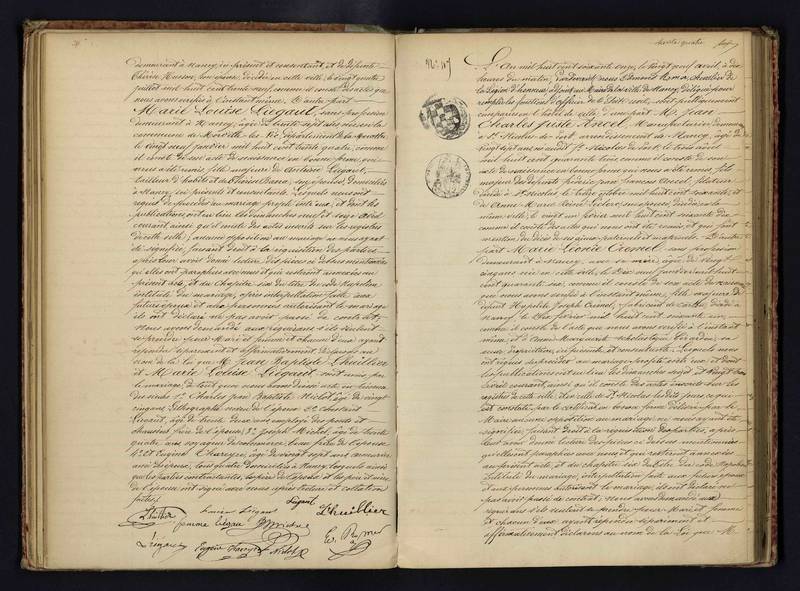 demeurant à Nancy, ici présent et consentant, et de défunte
Thérèse Husson, son épouse, décédée en cette ville, le vingt quatre
juillet mil huit cent trente neuf, comme il conste des actes que
nous avons vérifiés à l'instant même. D'autre part
Marie Louise Liégaut, sans profession
demeurant à Nancy, âgée de trente sept ans, née en la
commune de département de la Meurthe
le vingt neuf janvier mil huit cent trente quatre, comme
il conste de son acte de naissance en bonne forme, à
nous remis, fille majeure de Antoine Liégaut,
tailleur d'habits et de son épouse, domiciliés
à Nancy, ici présents et consentants. Lesquels nous ont
requis de procéder au mariage projeté entre eux, et dont les
publications ont eu lieu les dimanches neuf et seize avril
courant, ainsi qu'il conste des actes inscrits sur les registres
de cette ville; aucune opposition au mariage ne nous ayant
été signifiée, faisant droit à la réquisition des parties
après leur avoir donné lecture des pièces ci dessus mentionnées
qu'elles ont paraphées avec nous et qui resteront annexées au
présent acte, et du chapitre six du titre du code Napoléon
intitulé du mariage, après interpellation faite aux
futurs époux et aux personnes autorisant le mariage
ils ont déclaré ne pas avoir passé de contrat.
Nous avons demandé aux requérants s'ils veulent
se prendre pour Mari et femme et chacun d'eux ayant
répondu séparément et affirmativement, déclarons au
nom de la Loi que M. Jean Baptiste Lhuillier
et Marie Louise Liégaut sont unis par
le mariage, de tout quoi nous avons dressé acte en présence
des sieurs 1° Charles Jean Baptiste Nidot âgé de vingt
cinq ans, lithographe, de l'épouse 2° Constant
Liégaut, âgé de trente deux ans, employé des ponts et
chaussées, frère de l'épouse, 3° Joseph Michel, âgé de trente
quatre ans, voyageur de commerce, beau frère de l'épouse
4° et Eugène Chareyre, âgé de vingt sept ans,
ami des époux, tous quatre domiciliés à Nancy, lesquels ainsi
que les parties contractantes, le père de l'époux et les père et mère
de l'épouse ont signé avec nous après lecture et collation
faites.
Liégaut
Lhuillier
Lhuillier
femme Liégaut
Michel
Liégaut
Eugène Chareyre
Nidot
E. Roma
N° 117
L'an mil huit cent soixante onze, le vingt neuf avril, à dix
heures du matin, Pardevant nous Edmond Roma, chevalier de
la Légion d'honneur, adjoint au Maire de la ville de Nancy, délégué pour
remplir les fonctions d'officier de l'Etat civil, sont publiquement
comparus en l'hôtel de ville, d'une part M. Jean
Charles Juste Ancel, demeurant
à St. Nicolas de Port, arrondissement de Nancy, âgé de
vingt sept ans, né audit St. Nicolas de Port, le trois août
mil huit cent quarante trois, comme il conste de son
acte de naissance en bonne forme à nous remis, fils
majeur des défunts François Ancel,
décédé à St. Nicolas, le octobre mil huit cent soixante, et
de Anne Marie Leclerc, son épouse, décédée en la
même ville, le vingt un février mil huit cent soixante dix
comme il conste des actes qui nous ont été remis, et qui font
mention du décès de ses aïeux paternels et maternels. D'autre
part Marie Léonie sans profession
demeurant à Nancy, avec sa mère, âgée de vingt
cinq ans, née en cette ville, le dix neuf janvier mil huit
cent quarante six, comme il conste de son acte de naissance
que nous avons vérifié à l'instant même, fille majeure de
défunt Joseph décédé à
Nancy, le février mil huit cent soixante un,
comme il conste de l'acte que nous avons vérifié à l'instant
même, et d'Anne Marguerite Scholastique sa
veuve, ici présente et consentante. Lesquels nous
ont requis de procéder au mariage projeté entre eux, et dont
les publications ont eu lieu les dimanches seize et vingt trois
avril courant, ainsi qu'il conste des actes inscrits sur les
registres de cette ville et en celle de St. Nicolas de Port, ce qui
est constaté par le certificat en bonne forme délivré par le
Maire; aucune opposition au mariage ne nous ayant été
signifiée, faisant droit à la réquisition des parties, après
leur avoir donné lecture des pièces ci dessus mentionnées
qu'elles ont paraphées avec nous et qui resteront annexées
au présent acte, et du chapitre six du titre du code Napoléon
intitulé du mariage, interpellation faite aux futurs époux
et aux personnes autorisant le mariage, ils ont déclaré ne
pas avoir passé de contrat. Nous avons demandé aux
requérants s'ils veulent se prendre pour Mari et femme
et chacun d'eux ayant répondu séparément et
affirmativement, déclarons au nom de la Loi que M.